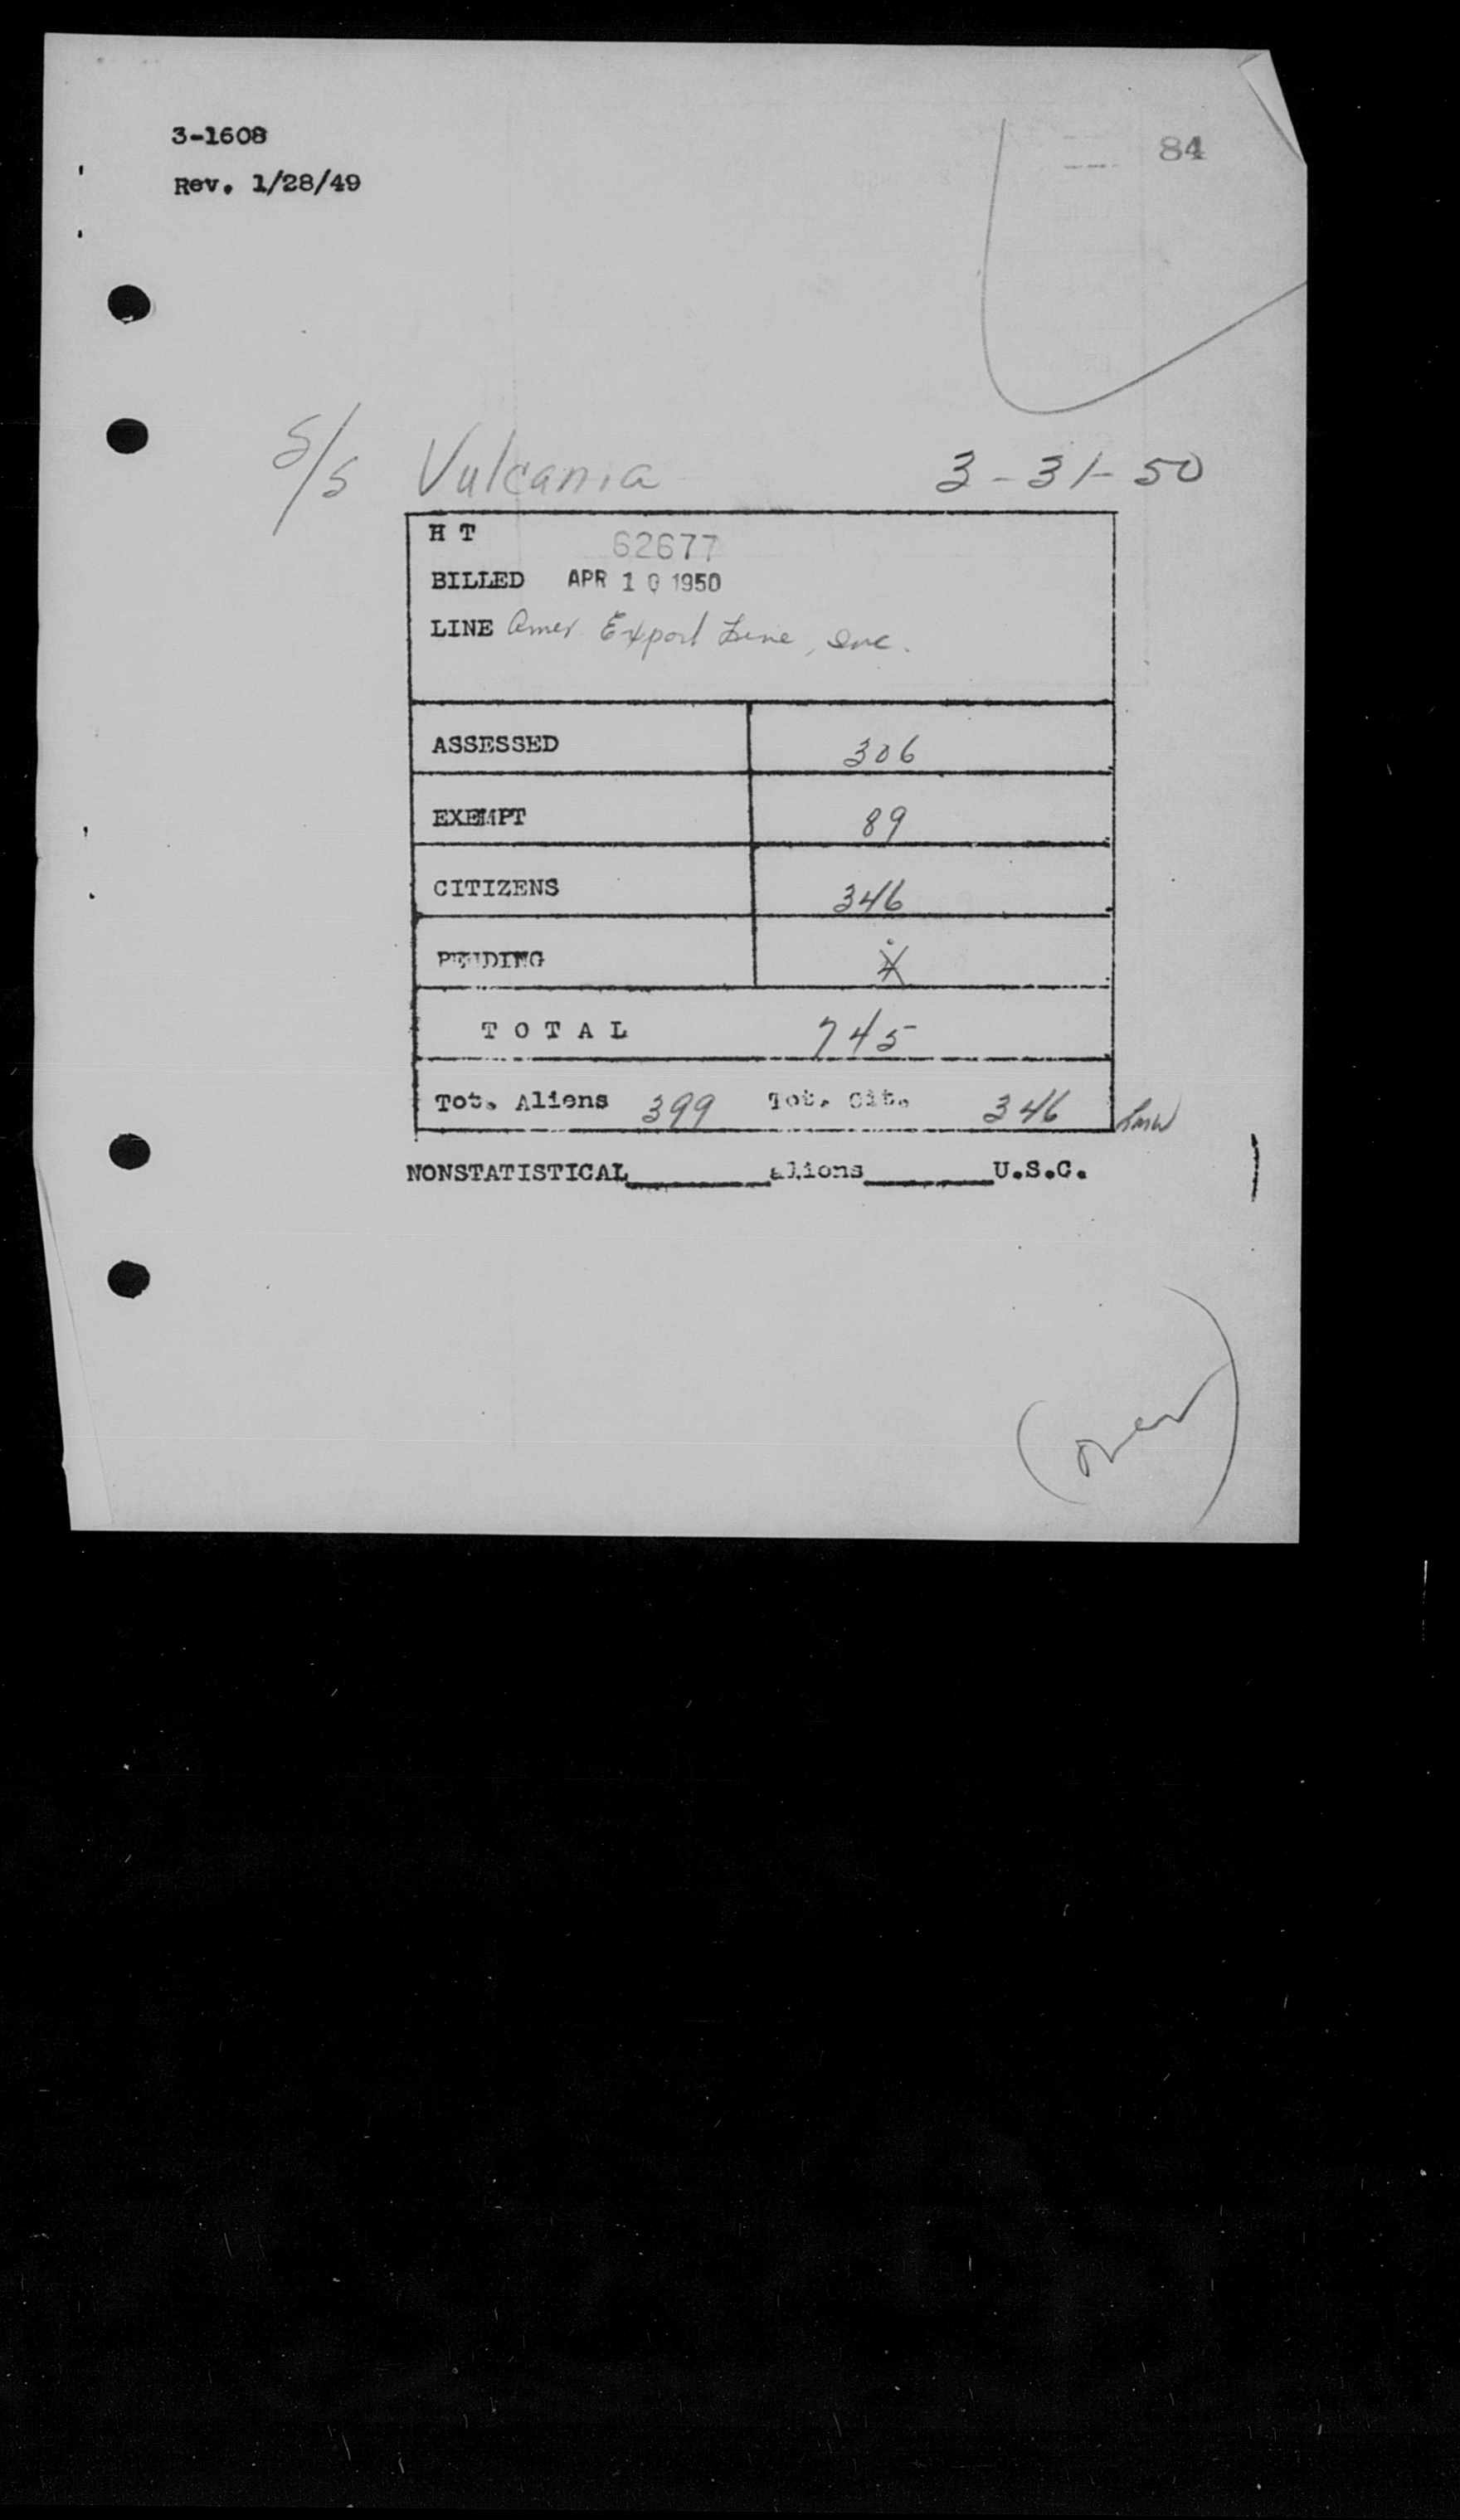 3-1608
84
Rev. 1/28/49
S/S Vulcania 3-31-50
H T 62677
BILLED APR 10 1950
LINE Amer Export Line, Inc.
ASSESSED 306
EXEMPT 89
CITIZENS 346
PENDING 4
TOTAL 745
Tot. Aliens 399 Tot. Cit. 346
NONSTATISTICAL______aliens______U.S.C.
(over)